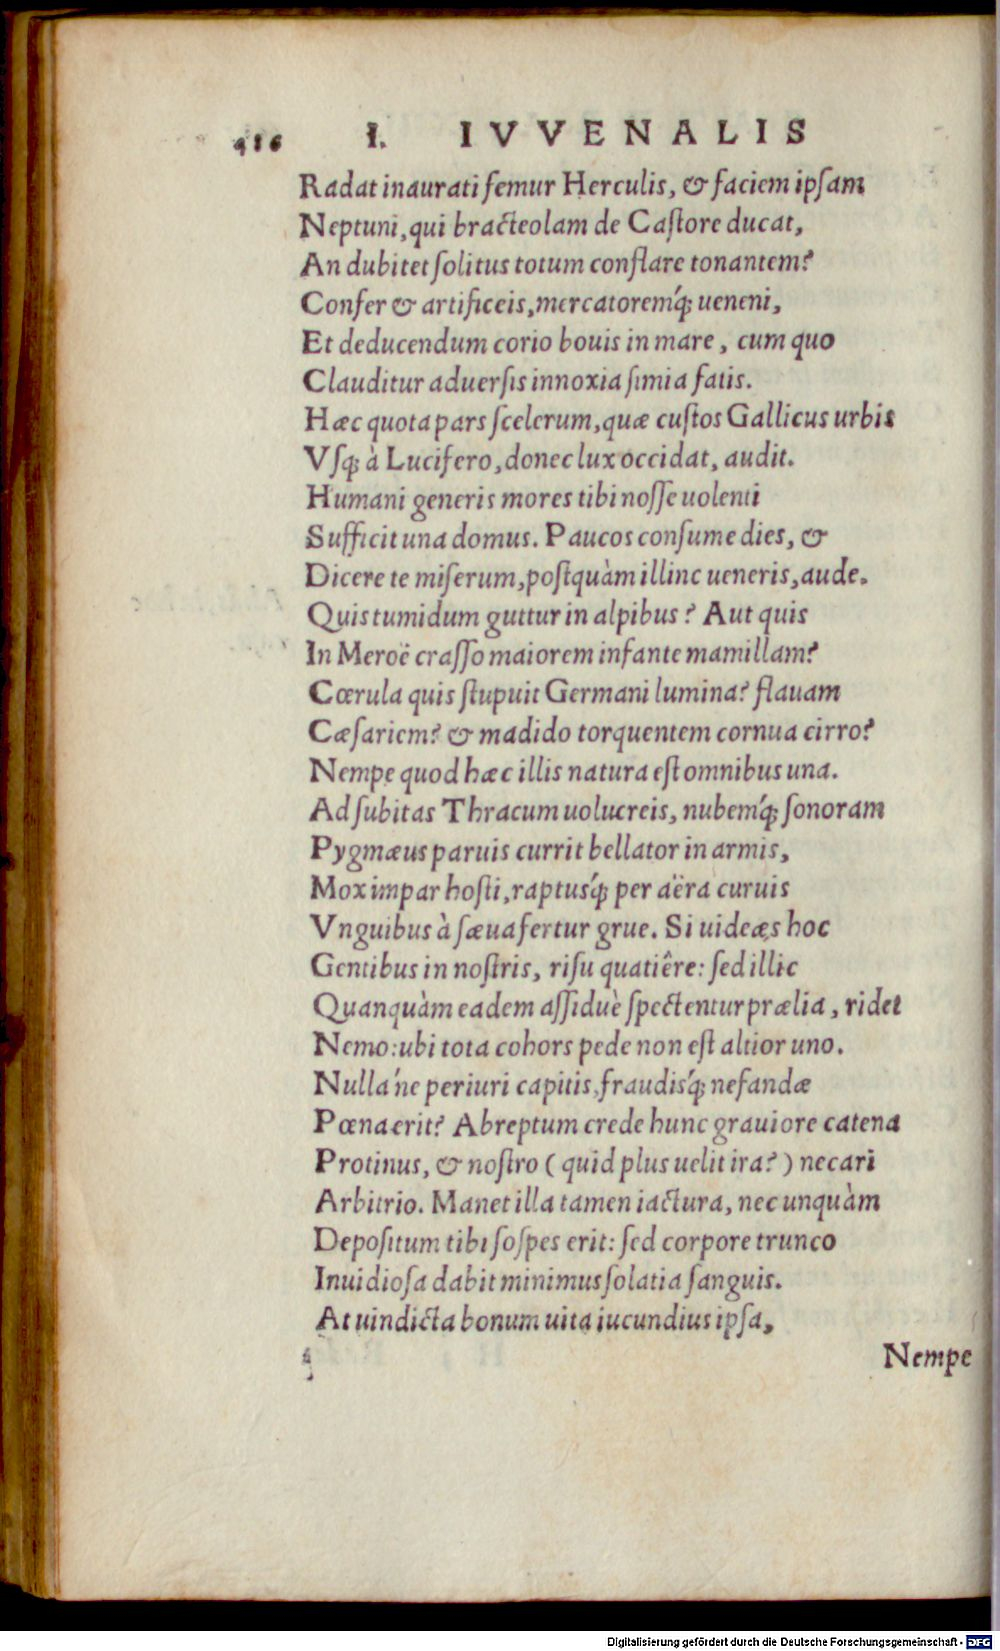 416 I. IVVENALIS
Radat inaurati femur Herculis, & faciem ipſam
Neptuni, qui bracteolam de Caſtore ducat,
An dubitet ſolitus totum conflare tonantem?
Confer & artificeis, mercatoremq́; ueneni,
Et deducendum corio bouis in mare, cum quo
Clauditur aduerſis innoxia ſimia fatis.
Hæc quota pars ſcelerum, quæ cuſtos Gallicus urbis
Vſq; à Lucifero, donec lux occidat, audit.
Humani generis mores tibi noſſe uolenti
Sufficit una domus. Paucos conſume dies, &
Dicere te miſerum, poſtquàm illinc ueneris, aude.
Quis tumidum guttur in alpibus? Aut quis
In Meroë craſſo maiorem infante mamillam?
Cœrula quis ſtupuit Germani lumina? flauam
Cæſariem? & madido torquentem cornua cirro?
Nempe quod hæc illis natura eſt omnibus una.
Ad ſubitas Thracum uolucreis, nubemq́; ſonoram
Pygmæus paruis currit bellator in armis,
Mox impar hoſti, raptusq́; per aëra curuis
Vnguibus à ſæua fertur grue. Si uideæs hoc
Gentibus in noſtris, riſu quatiêre: ſed illic
Quanquàm eadem aſſiduè ſpectentur prælia, ridet
Nemo: ubi tota cohors pede non eſt altior uno.
Nulla ńe periuri capitis, fraudisq́; nefandæ
Pœna erit? Abreptum crede hunc grauiore catena
Protinus, & noſtro (quid plus uelit ira?) necari
Arbitrio. Manet illa tamen iactura, nec unquàm
Depoſitum tibi ſoſpes erit: ſed corpore trunco
Inuidioſa dabit minimus ſolatia ſanguis.
At uindicta bonum uita iucundius ipſa,
Nempe
Digitalisierung gefördert durch die Deutsche Forschungsgemeinschaft - DFG